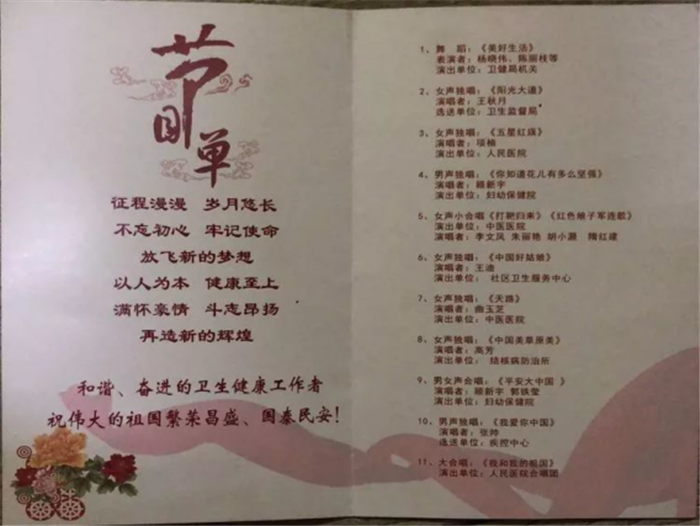 节目单
征程漫漫 岁月悠长
不忘初心 牢记使命
放飞新的梦想
以人为本 健康至上
满怀豪情 斗志昂扬
再造新的辉煌
和谐、奋进的卫生健康工作者
祝伟大的祖国繁荣昌盛、国泰民安!
1、舞 蹈:《美好生活》
表演者:杨晓伟、陈丽枝等
演出单位:卫健局机关
2、女声独唱:《阳光大道》
演唱者:王秋月
选送单位:卫生监督局
3、女声独唱:《五星红旗》
演唱者:项楠
演出单位:人民医院
4、男声独唱:《你知道花儿有多么坚强》
演唱者:顾新宇
演出单位:妇幼保健院
5、女声小合唱《打靶归来》《红色娘子军连歌》
演出单位:中医医院
演唱者:李文凤 朱丽艳 胡小灏 隋红建
6、女声独唱:《中国好姑娘》
演唱者:王迪
演出单位: 社区卫生服务中心
7、女声独唱:《天路》
演唱者:曲玉芝
演出单位:中医医院
8、女声独唱:《中国美草原美》
演唱者:高芳
演出单位: 结核病防治所
9、男女声合唱:《平安大中国 》
演唱者:顾新宇 郭铁莹
演出单位:妇幼保健院
10、男声独唱:《我爱你中国》
演唱者:张帅
选送单位:疾控中心
11、大合唱:《我和我的祖国》
演出单位:人民医院合唱团